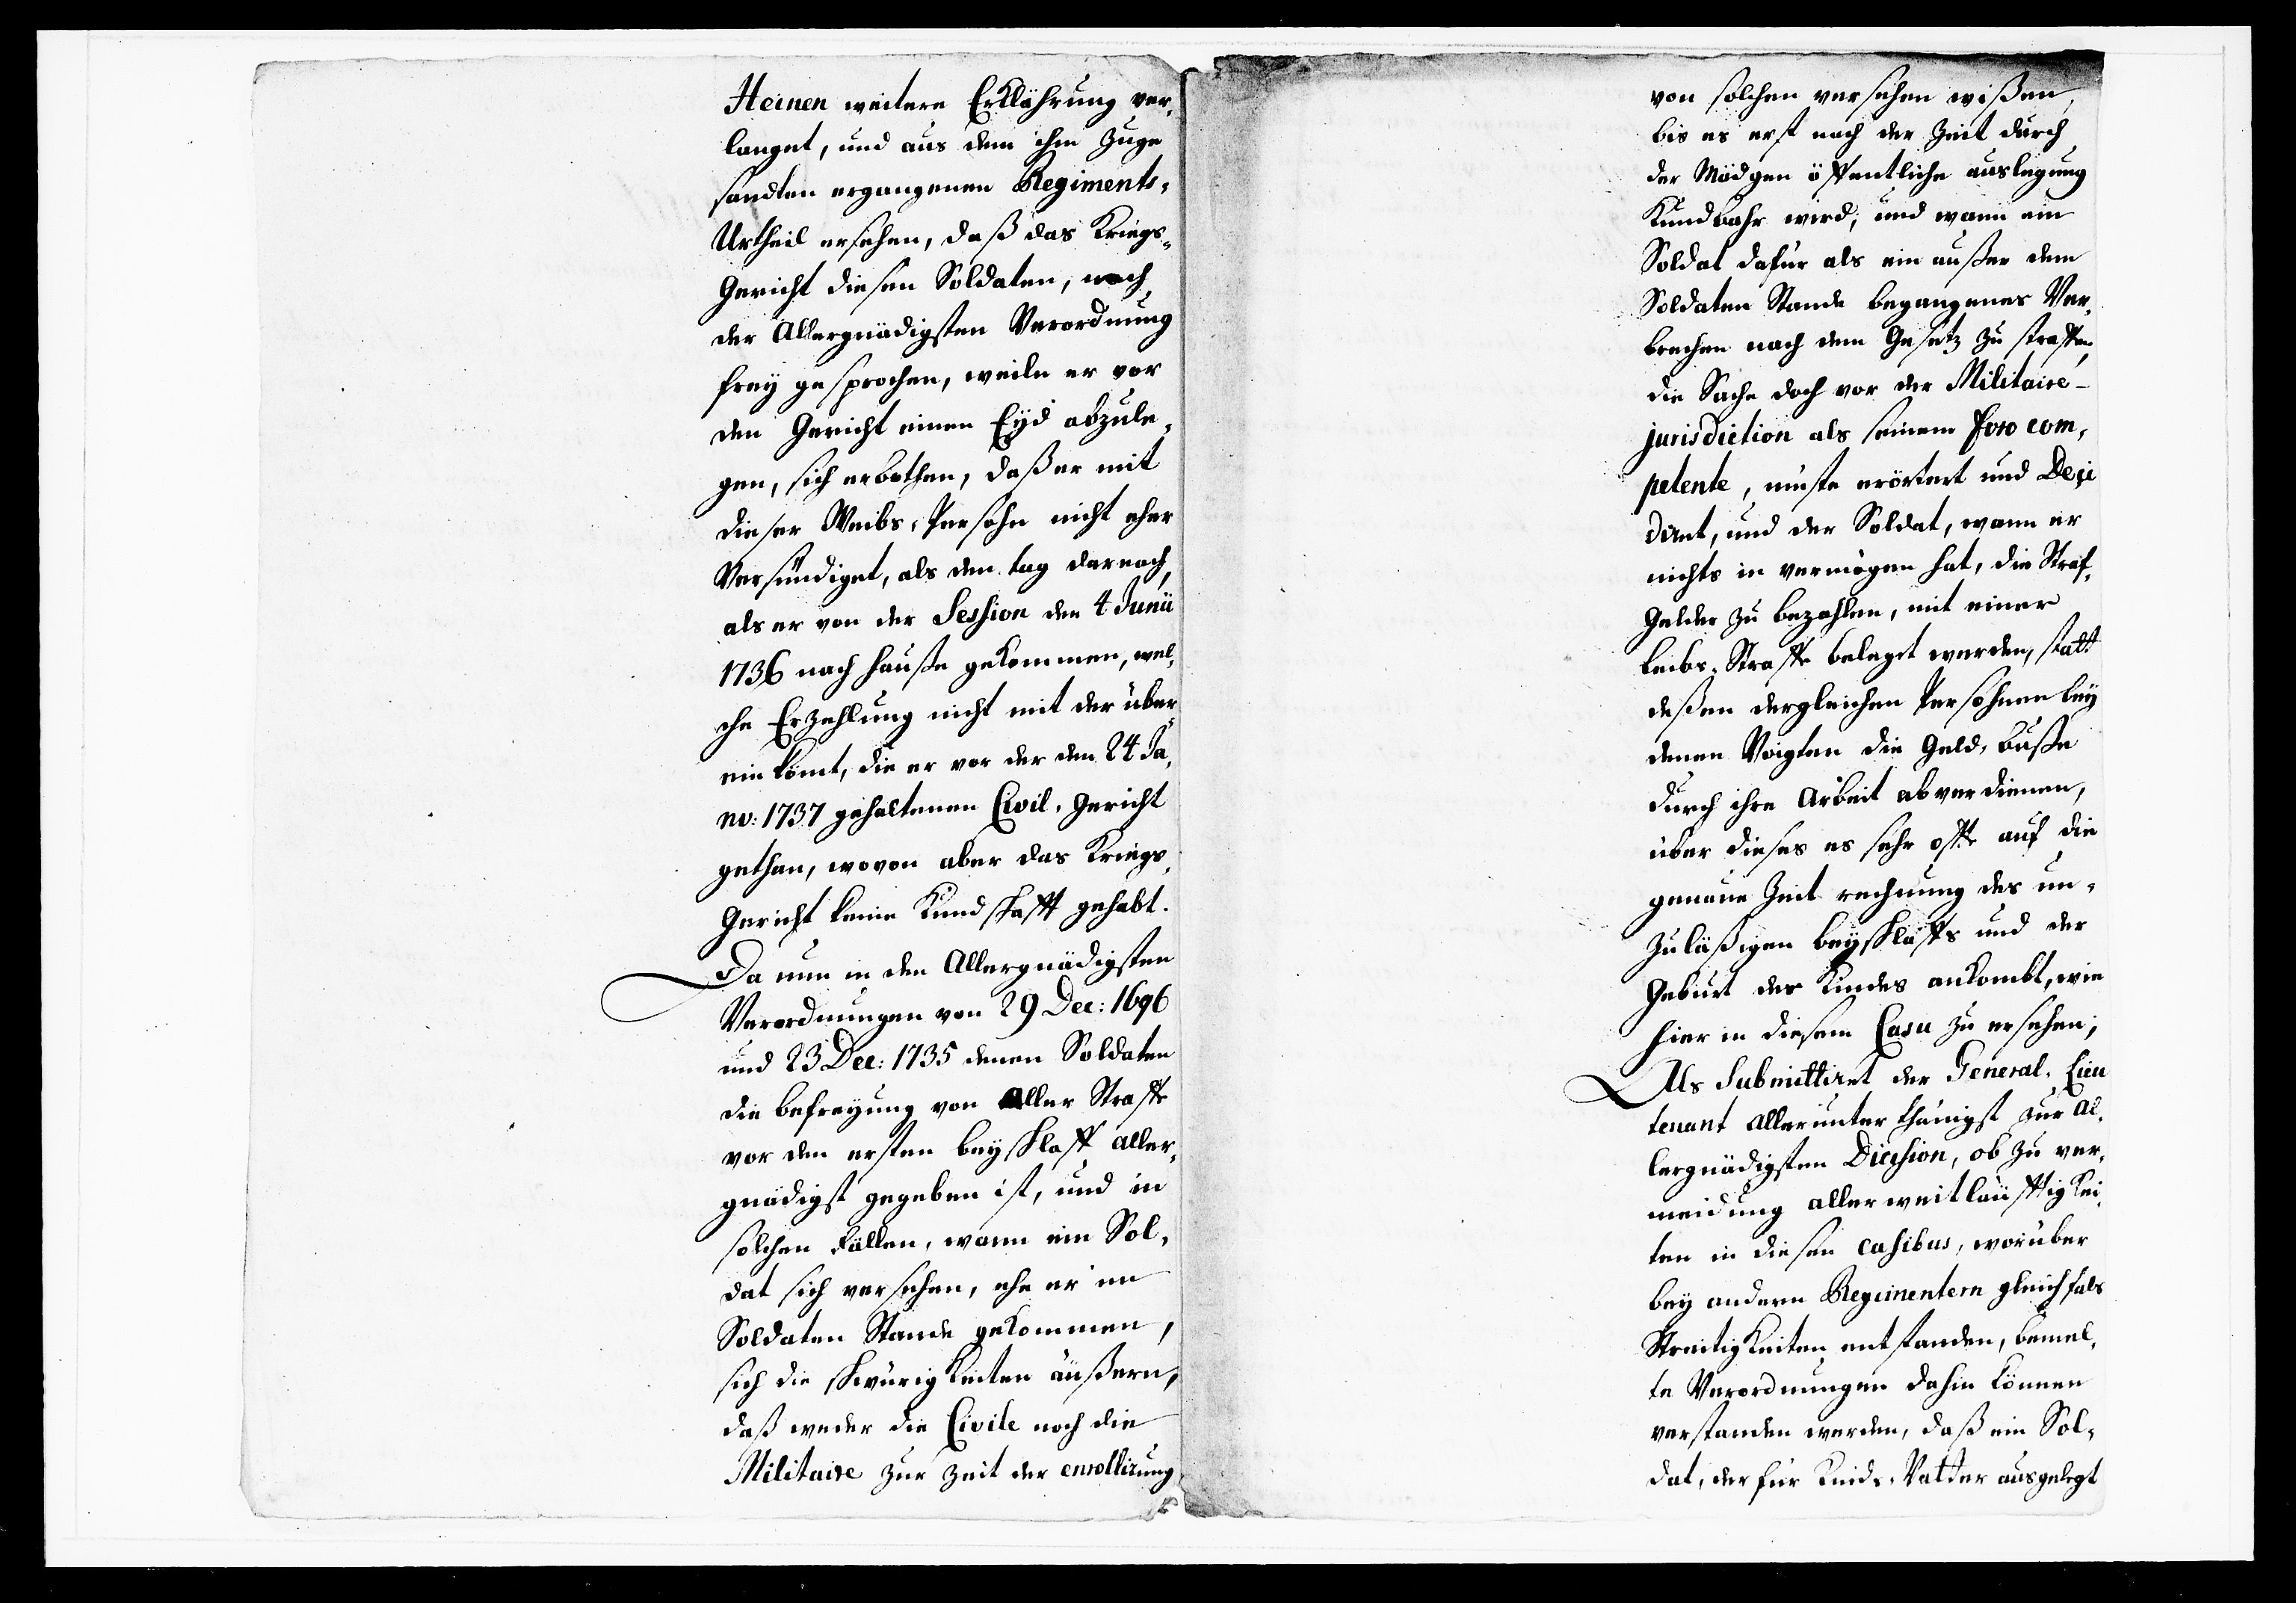 Heinen weitere Erklährung ver,
langet, und aus dem ihm zuge
sandten ergangenen Regiments,
Urtheil ersehen, daß das Kriegs,
Gericht diesen Soldaten, nach
der Allergnädigsten Verordnung
frey gesprochen, weile er vor
den Gericht einen Eyd abzule,
gen, sich erbothen, daß er mit
dieser Weibs, Persohn nicht eher
Versündiget, als den tag darnach,
als er von der Session den 4 Junii
1736 nach hauße gekommen, wel,
che Erzehlung nicht mit der über
ein kömt, die er vor der den 24 Ja,
nv: 1737 gehaltenen Civil, Gericht
gethan, wovon aber das Kriegs,
Gericht keine Kundschafft gehabt.
Da nun in den Allergnädigsten
Verordnungen von 29 Dec: 1696
und 23 Dec: 1735 denen Soldaten
die befreyung von Aller Straffe
vor den ersten beyschlaff aller,
gnädigst gegeben ist, und in
solchen Fällen, wann ein Sol,
dat sich versehen, ehe er im
Soldaten Stande gekommen,
sich die schwürigkeiten äußern,
daß weder die Civile noch die
Militaire zur Zeit der enrollirung
von solchen versehen wißen,
bis es erst nach der Zeit durch
der Mädgen öffentliche auslegung
Kundbahr wird, und wann ein
Soldat dafür als ein außer dem
Soldaten Stande begangenes Ver,
brechen nach dem Gesetz zu straffen,
die Sache doch vor der Militaire-
jurisdiction als seinem foro com,
petente, müste erörtert und Deçi
dirt, und der Soldat, wann er
nichts in vermögen hat, die Straf,
Gelder zu bezahlen, mit einer
Leibs, Straffe belegt werden, statt
deßen dergleichen Persohnen bey
denen Voigten die Geld, buße
durch ihre Arbeit abverdienen,
über dieses es sehr offte auf die
genaue Zeit rechnung des un,
zuläßigen beyschlaffs und der
Geburt des Kindes ankombt, wie
hier in diesem Casu zu ersehen;
Als Submittiret der General, Lieu
tenant Allerunterthänigst zur Al,
lergnädigsten Dicision, ob zu ver,
meidung aller weitläufftigkei,
ten in diesen casibus, worüber
bey andern Regimentern gleichfals
Streitigkeiten entstanden, bemel,
te Verordnungen dahin können
verstanden werden, daß ein Sol,
dat, der für Kinds, Vatter ausgelegt